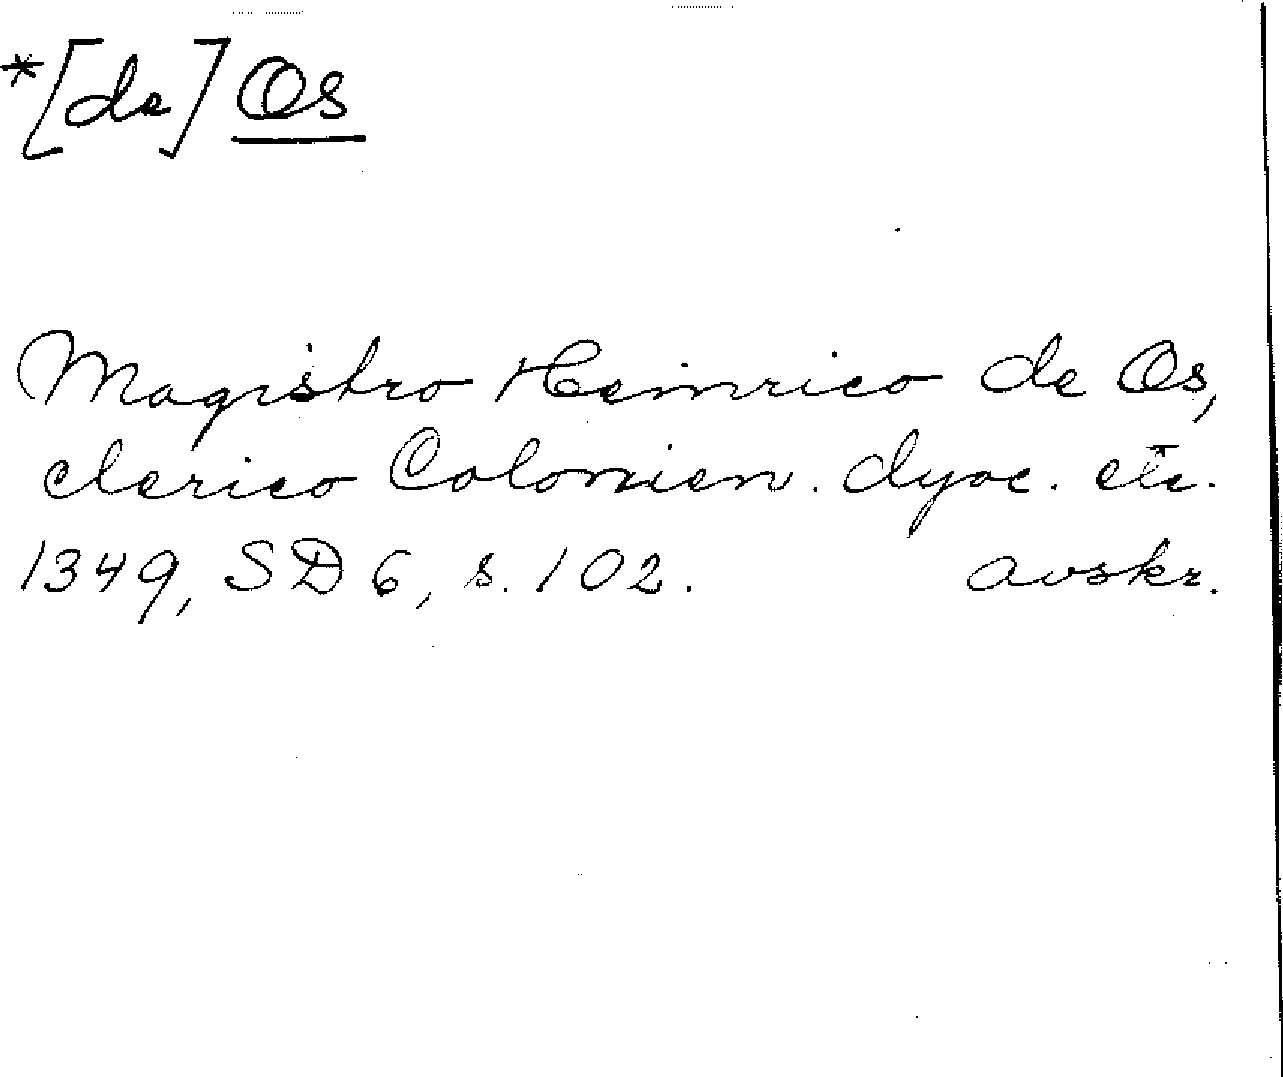 *[de] Os
Magistro Heinrico de Os,
clerico Colonien. dyoc. etc.
1349, SD 6, s. 102. avskr.